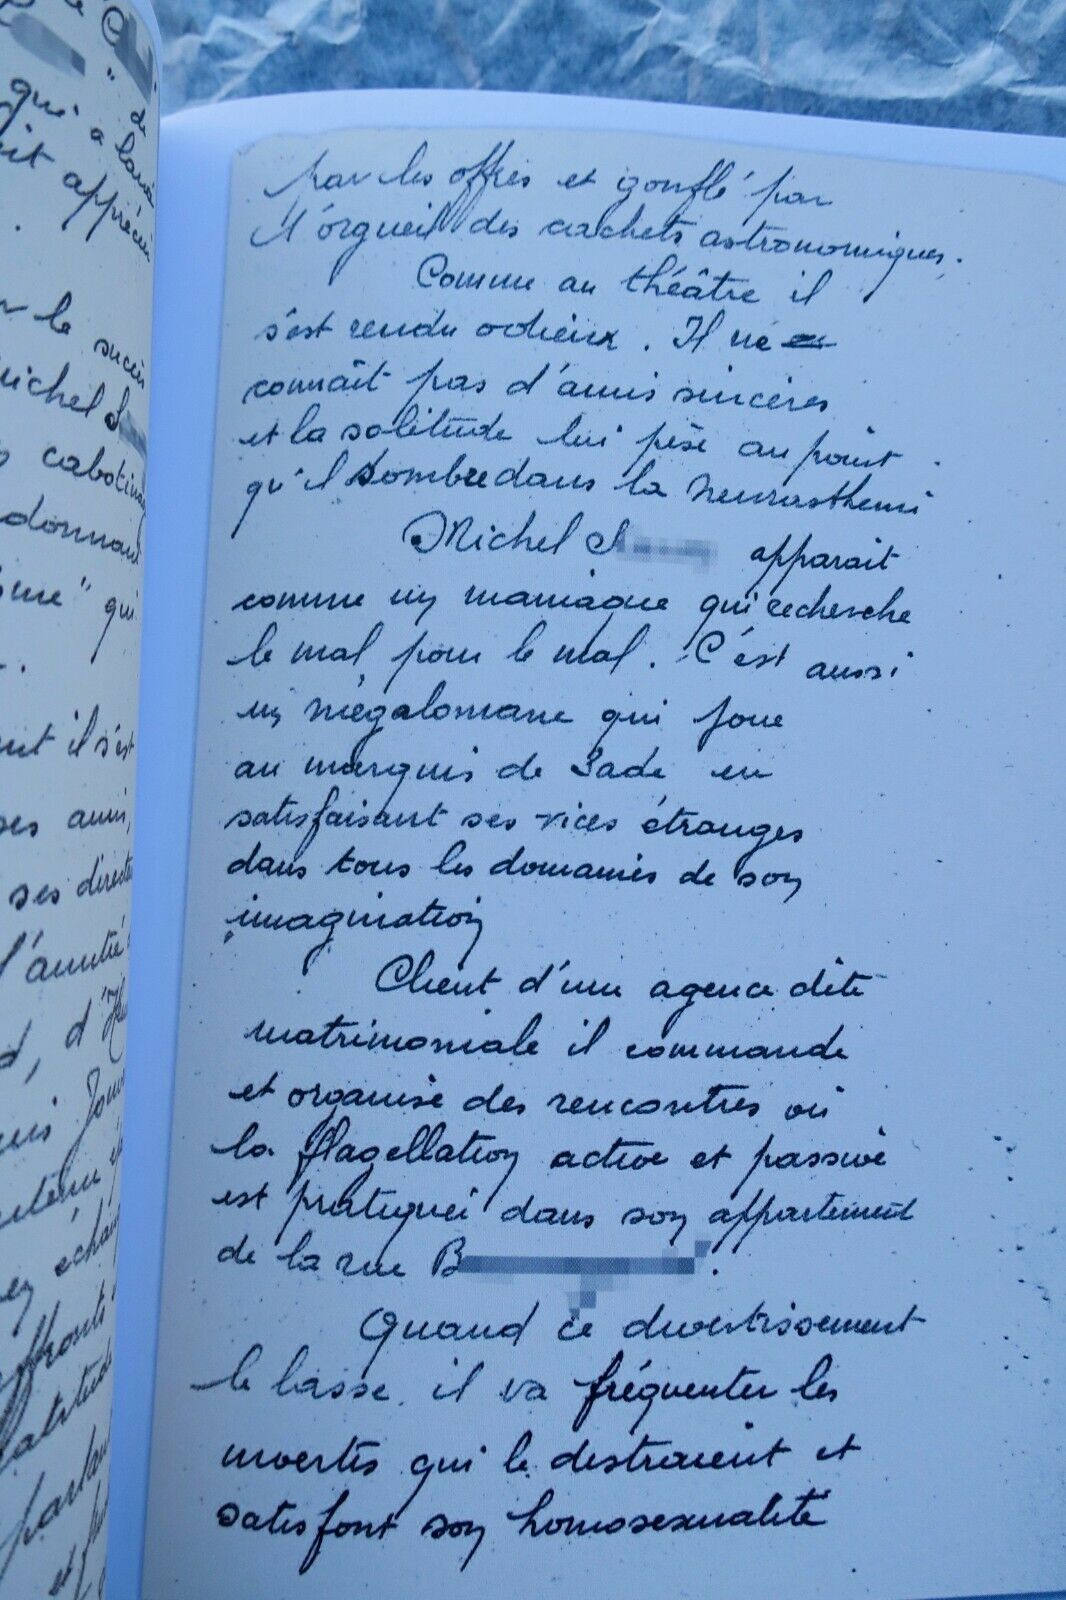 qui a lancé
appréciée
le succès
cabotinage
donnant
qui
il s'est
ses amis,
ses
l'amitié
par les offres et gonflé par
l'orgueil des cachets astronomiques.
Comme au théâtre il
s'est rendu odieux. Il ne
connait pas d'amis sincères
et la solitude lui pèse au point
qu'il sombre dans la neurasthenie
Michel S apparait
comme un maniaque qui recherche
le mal pour le mal. C'est aussi
un mégalomane qui joue
au marquis de Sade en
satisfaisant ses vices étranges
dans tous les domaines de son
imagination
Client d'une agence dite
matrimoniale il commande
et organise des rencontres où
la flagellation active et passive
est pratiquée dans son appartement
de la rue B.
Quand ce divertissement
le lasse, il va fréquenter les
invertis qui le distraient et
satisfont son homosexualité